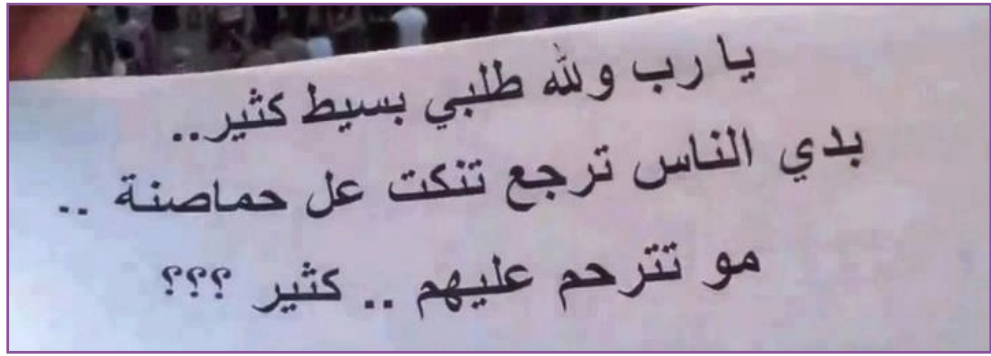 يا رب ولله طلبي بسيط كثير..
بدي الناس ترجع تنكت عل حماصنة ..
مو تترحم عليهم .. كثير ؟؟؟